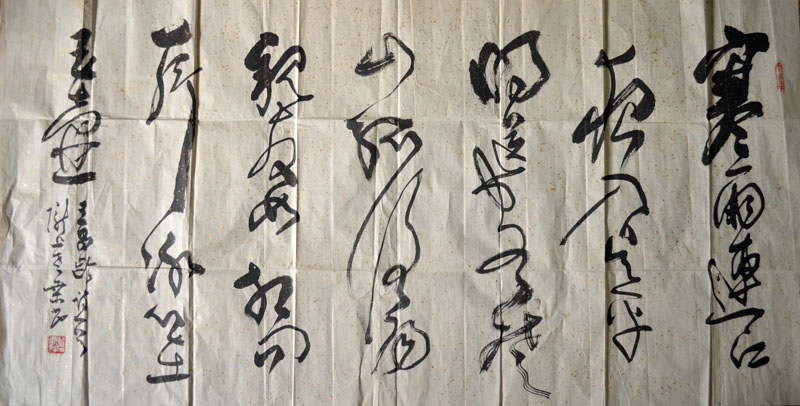 寒雨連江
夜入吳平
明送客楚
山孤洛陽
親友如相問
一片冰心在
玉壺
王昌齡詩